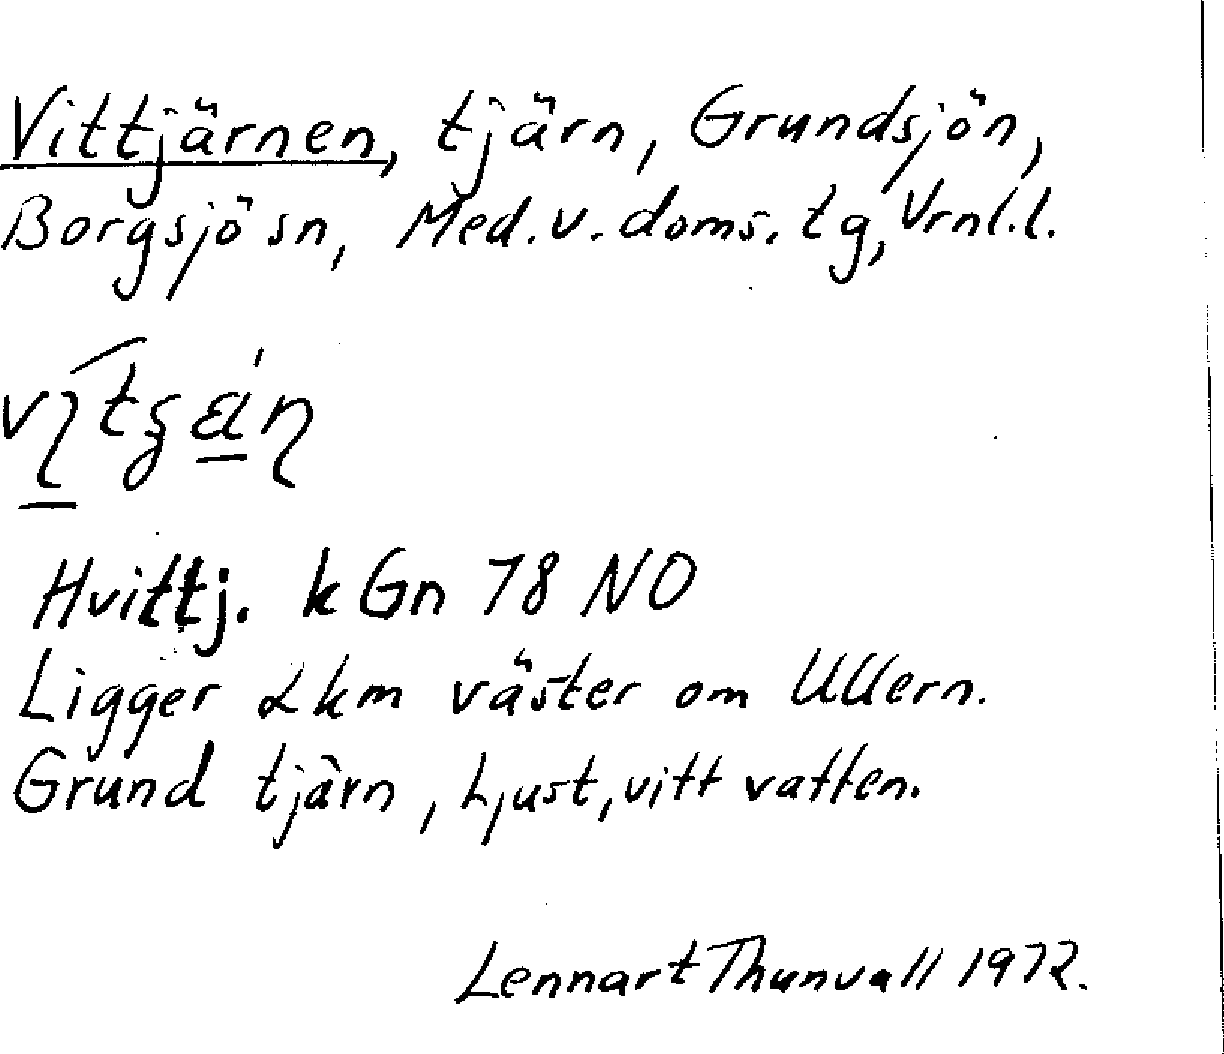 Vittjärnen, tjärn, Grundsjön,
Borgsjö sn, Med. v. doms. tg, Vrnl. l.
Hvittj. k Gn 78 NO
Ligger 2 km väster om Ullern.
Grund tjärn, Ljust, vitt vatten.
Lennart Thunvall 1972.